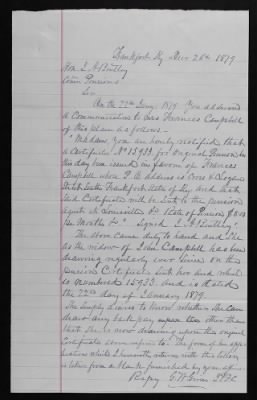 Frankfort Ky Decr 26th 1879
Hon. J. A. Bentley
Com Pensions
Sir
On the 22nd Jany 1879 you addressed
a Communication to Mrs Frances Campbell
of this place as follows -
"Madam, you are hereby notified that
a Certificate No 15933 for original Pension has
this day been issued in favour of Frances
Campbell whose P.O. address is Cross & Logan
Frankfort State of Ky and that
said Certificate will be sent to the pension
agent at Louisville Ky Rate of Pension $8.00
per Month &c" Signed J. A. Bentley
The above came duly to hand and she
as the widow of John Campbell has been
drawing regularly ever since on the
pension Certificate sent her and which
is numbered 15933. and is dated
the 22nd day of January 1879.
She simply desires to know whether she can
draw any back pay other than
that she is now drawing upon the original
Certificate above referred to. The form of an app-
lication which I herewith return with this letter
is taken from a blank furnished by you